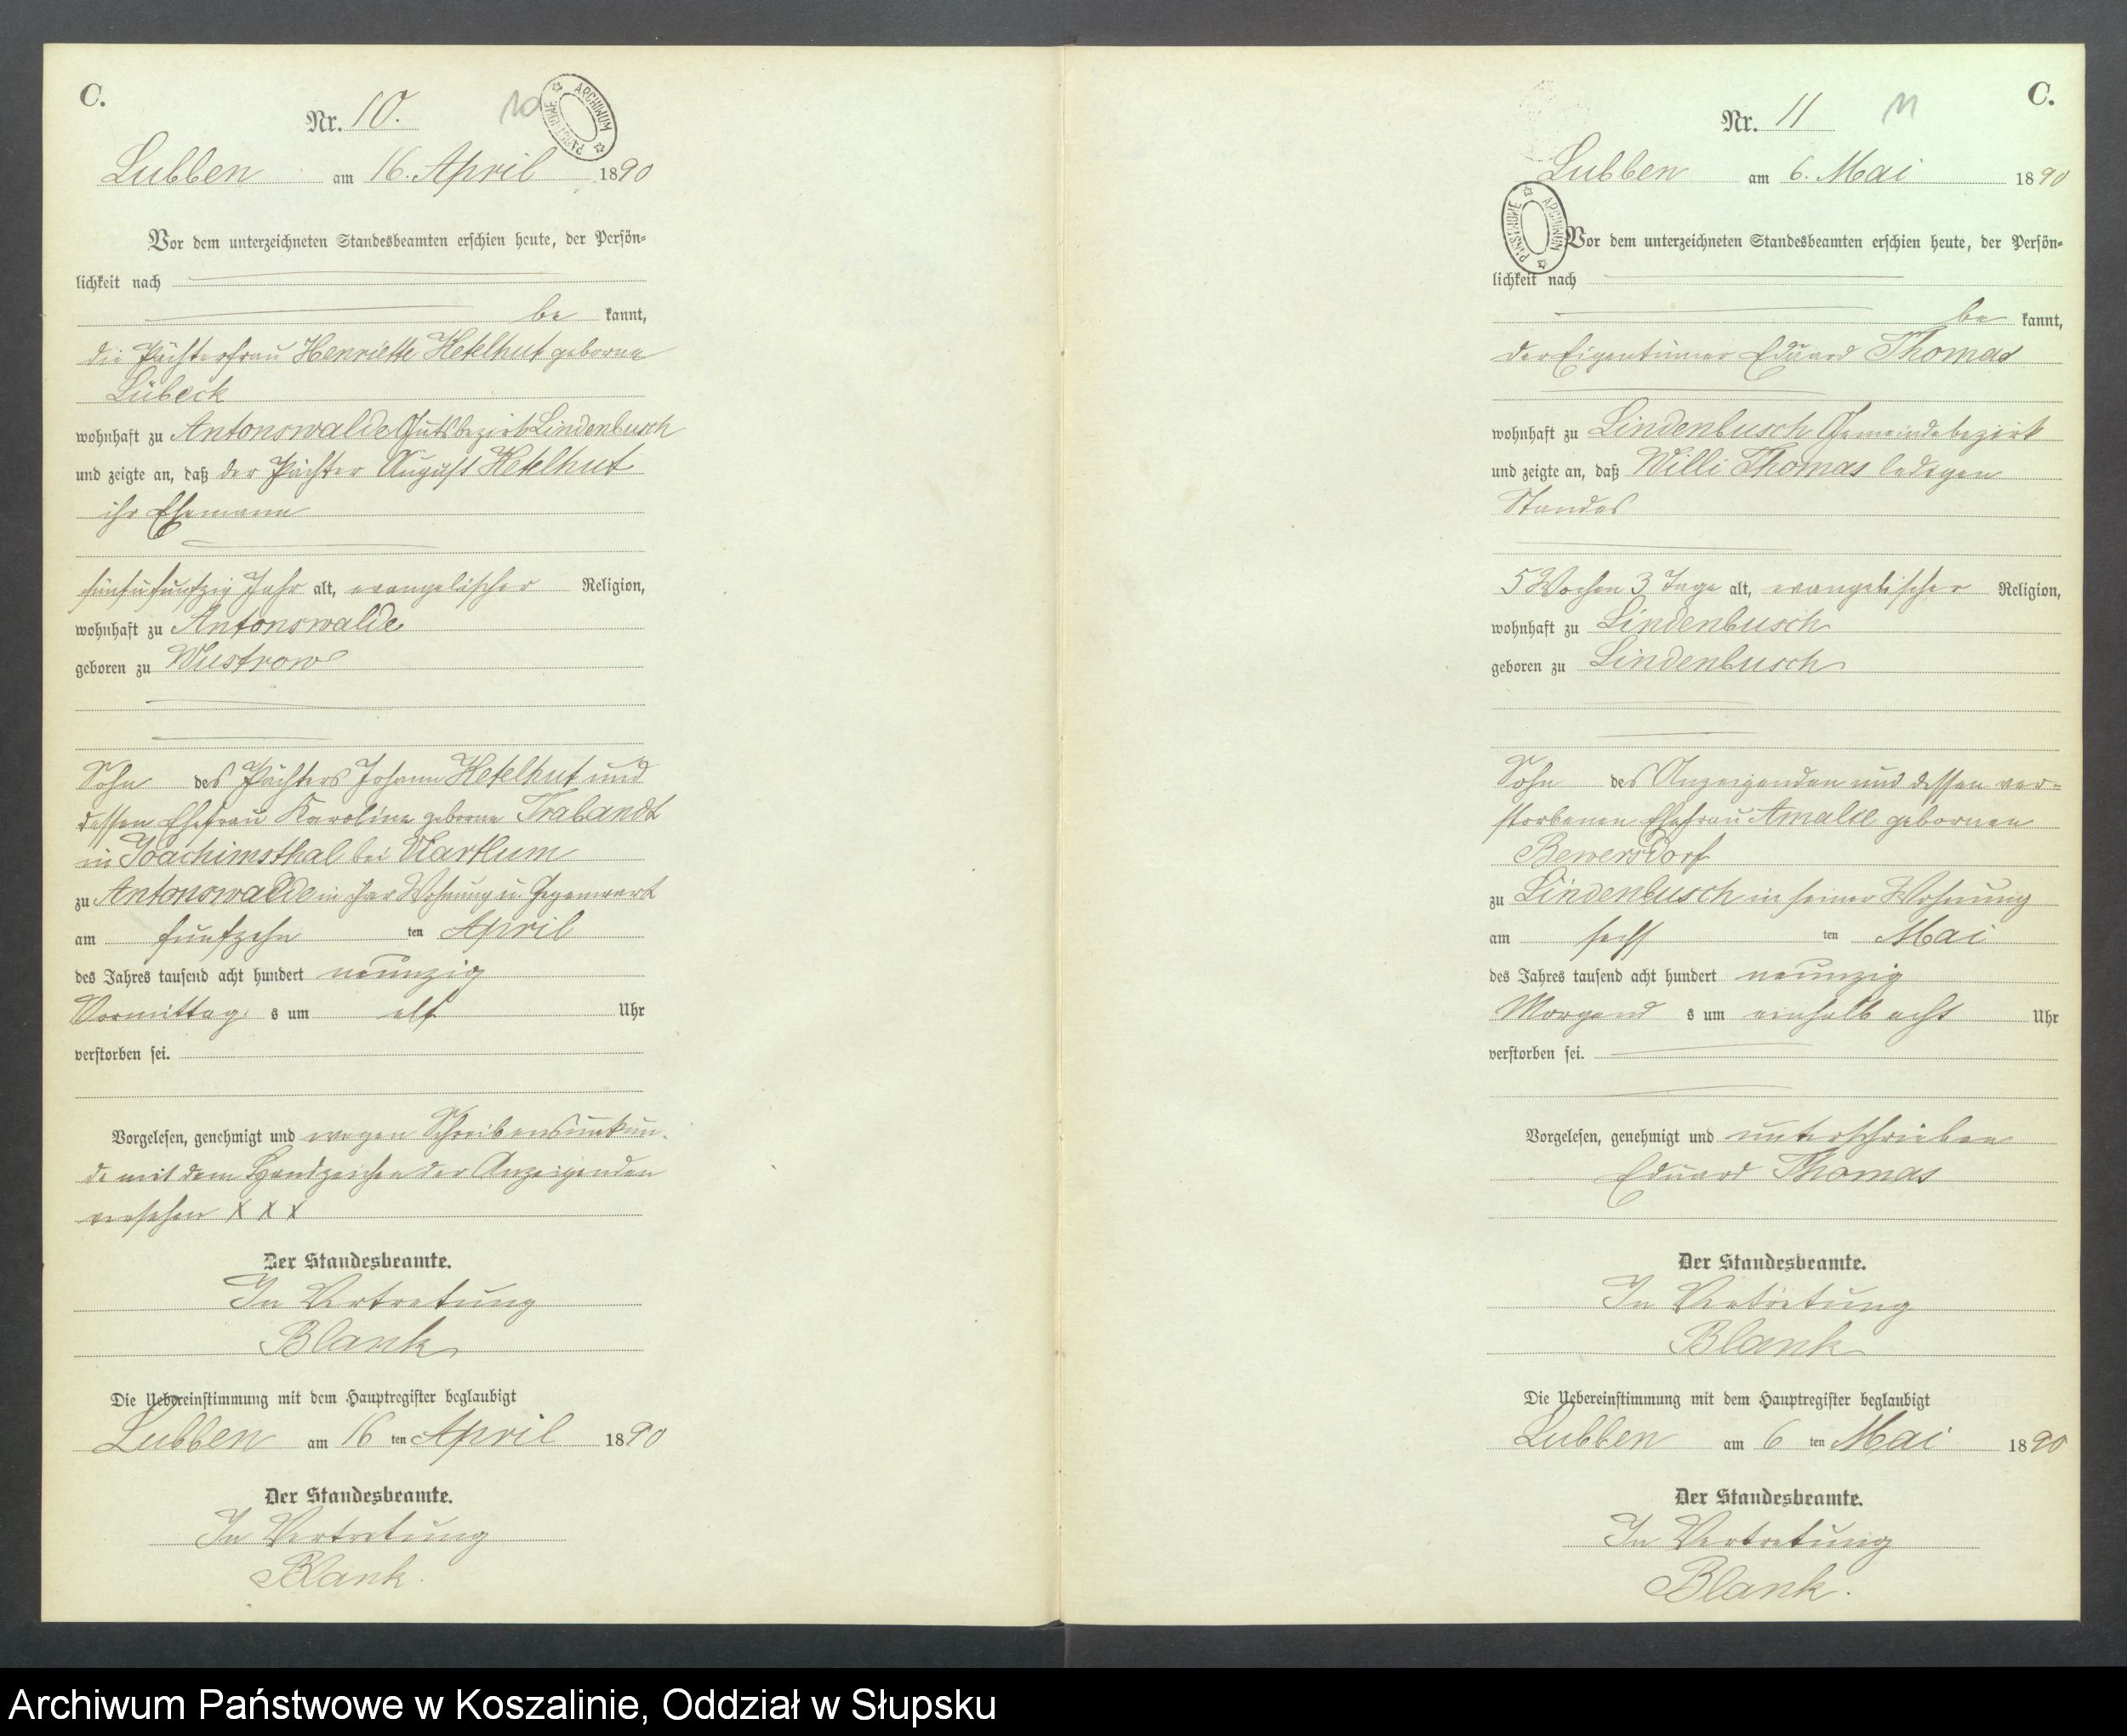 C.
Nr. 10.
10
ARCHIWUM PAŃSTWOWE
Lubben am 16. April 1890
Vor dem unterzeichneten Standesbeamten erschien heute, der Persön-
lichkeit nach
be kannt,
die Pächterfrau Henriette Hetelhut geborne
Lübeck
wohnhaft zu Antonswalde Gutsbezirk Lindenbusch
und zeigte an, daß der Pächter August Hetelhut
ihr Ehemann
fünfufunfzig Jahr alt, evangelischer Religion,
wohnhaft zu Antonswalde
geboren zu Wustrow
Sohn des Pächters Johann Hetelhut und
dessen Ehefrau Karoline geborne Trabandt
in Joachimsthal bei
zu Antonswalde in ihrer Wohnung in Gegenwart
am funfzehn ten April
des Jahres tausend acht hundert neunzig
Vormittag s um elf Uhr
verstorben sei.
Vorgelesen, genehmigt und wegen Schreibensunkun-
de mit dem Handzeichen der Anzeigenden
versehen X X X
Der Standesbeamte.
In Vertretung
Blank
Die Uebereinstimmung mit dem Hauptregister beglaubigt
Lubben am 16 ten April 1890
Der Standesbeamte.
In Vertretung
Blank.
C.
Nr. 11
11
Lubben am 6. Mai 1890
ARCHIWUM PAŃSTWOWE
Vor dem unterzeichneten Standesbeamten erschien heute, der Persön-
lichkeit nach
be kannt,
der Eigentümer Eduard Thomas
wohnhaft zu Lindenbusch Gemeindebezirk
und zeigte an, daß Willi Thomas ledigen
Standes
5 Wochen 3 Tage alt, evangelischer Religion,
wohnhaft zu Lindenbusch
geboren zu Lindenbusch
Sohn des Anzeigenden und dessen ver-
storbenen Ehefrau Amalie gebornen
Bewersdorf
zu Lindenbusch in seiner Wohnung
am sechs ten Mai
des Jahres tausend acht hundert neunzig
Morgend s um einhalb acht Uhr
verstorben sei.
Vorgelesen, genehmigt und unterschrieben
Eduard Thomas
Der Standesbeamte.
In Vertretung
Blank
Die Uebereinstimmung mit dem Hauptregister beglaubigt
Lubben am 6 ten Mai 1890
Der Standesbeamte.
In Vertretung
Blank.
Archiwum Państwowe w Koszalinie, Oddział w Słupsku